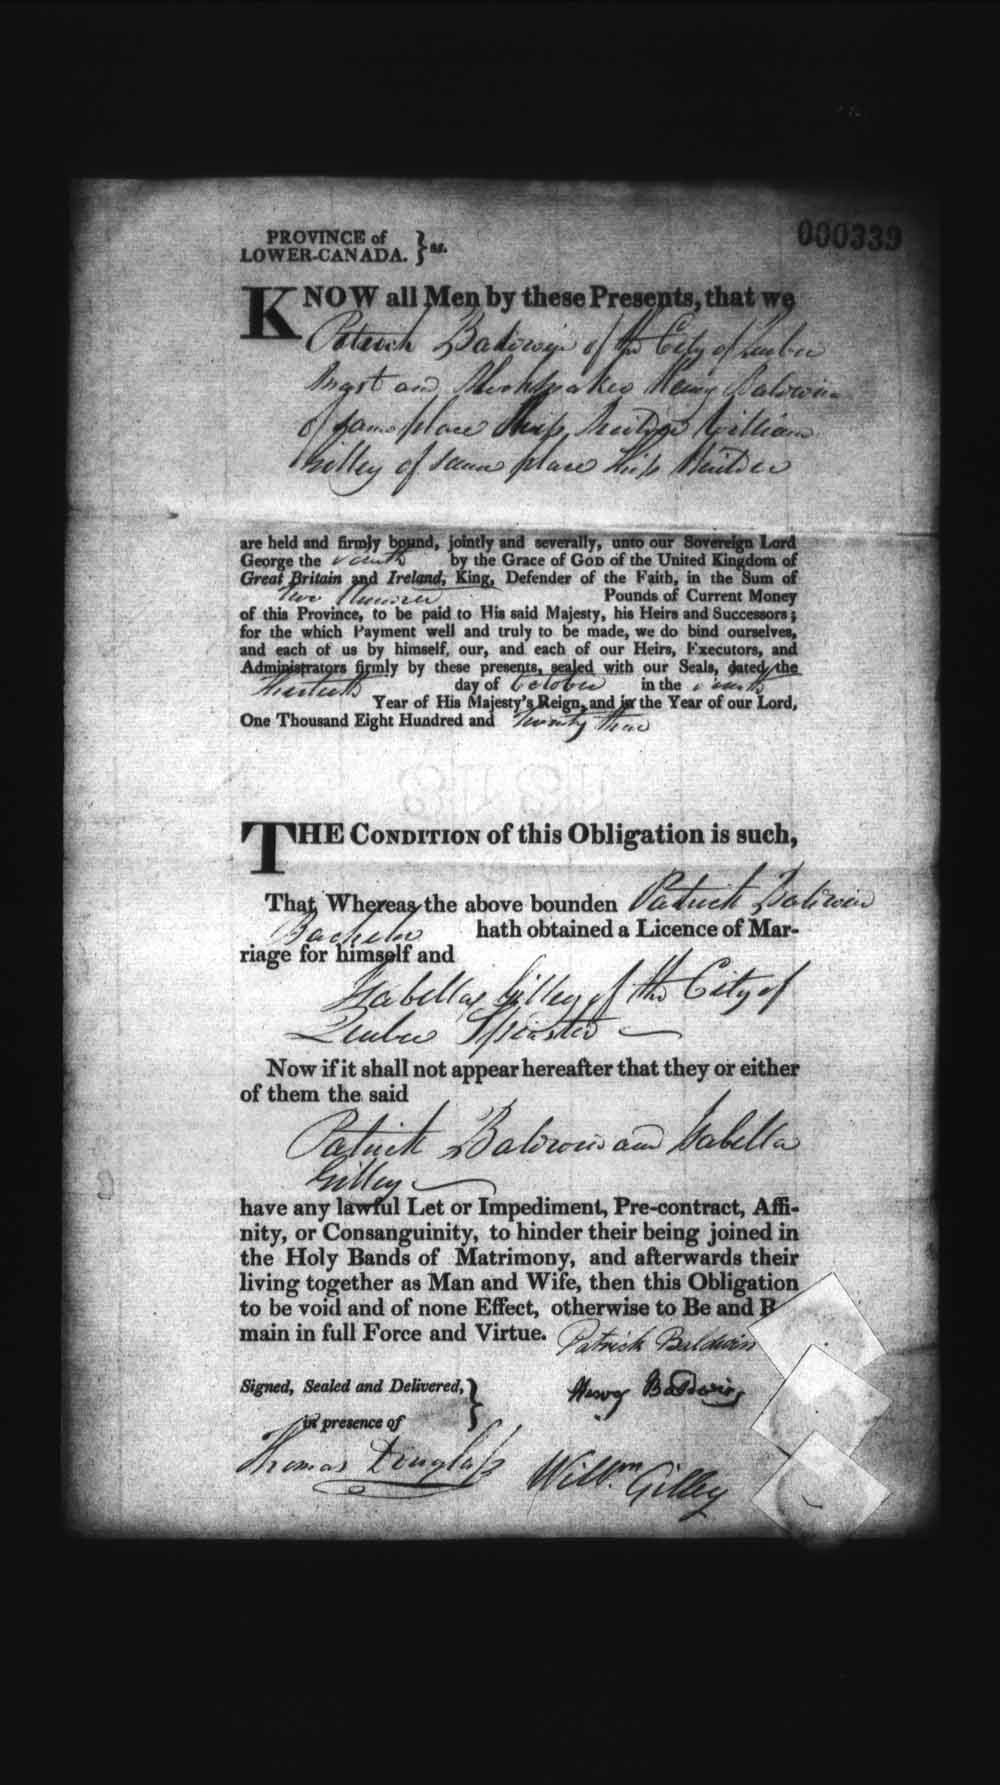 000339
PROVINCE of
LOWER-CANADA. } ss.
KNOW all Men by these Presents, that we
Patrick Baldwin of the City of Quebec
Mast and Blockmaker Henry Baldwin
of same place Ship Builder William
Gilley of same place Ship Builder
are held and firmly bound, jointly and severally, unto our Sovereign Lord
George the Fourth by the Grace of GOD of the United Kingdom of
Great Britain and Ireland, King, Defender of the Faith, in the Sum of
Two Pounds of Current Money
of this Province, to be paid to His said Majesty, his Heirs and Successors;
for the which Payment well and truly to be made, we do bind ourselves,
and each of us by himself, our, and each of our Heirs, Executors, and
Administrators firmly by these presents, sealed with our Seals, dated the
day of October in the Fourth
Year of His Majesty's Reign, and in the Year of our Lord,
One Thousand Eight Hundred and Twenty three
THE CONDITION of this Obligation is such,
That Whereas the above bounden Patrick Baldwin
Bachelor hath obtained a Licence of Mar-
riage for himself and
Isabella Gilley of the City of
Quebec Spinster
Now if it shall not appear hereafter that they or either
of them the said
Patrick Baldwin and Isabella
Gilley
have any lawful Let or Impediment, Pre-contract, Affi-
nity, or Consanguinity, to hinder their being joined in
the Holy Bands of Matrimony, and afterwards their
living together as Man and Wife, then this Obligation
to be void and of none Effect, otherwise to Be and R
main in full Force and Virtue.
Patrick Baldwin
Signed, Sealed and Delivered, }
in presence of
Henry Baldwin
Thomas Douglass
Willm Gilley